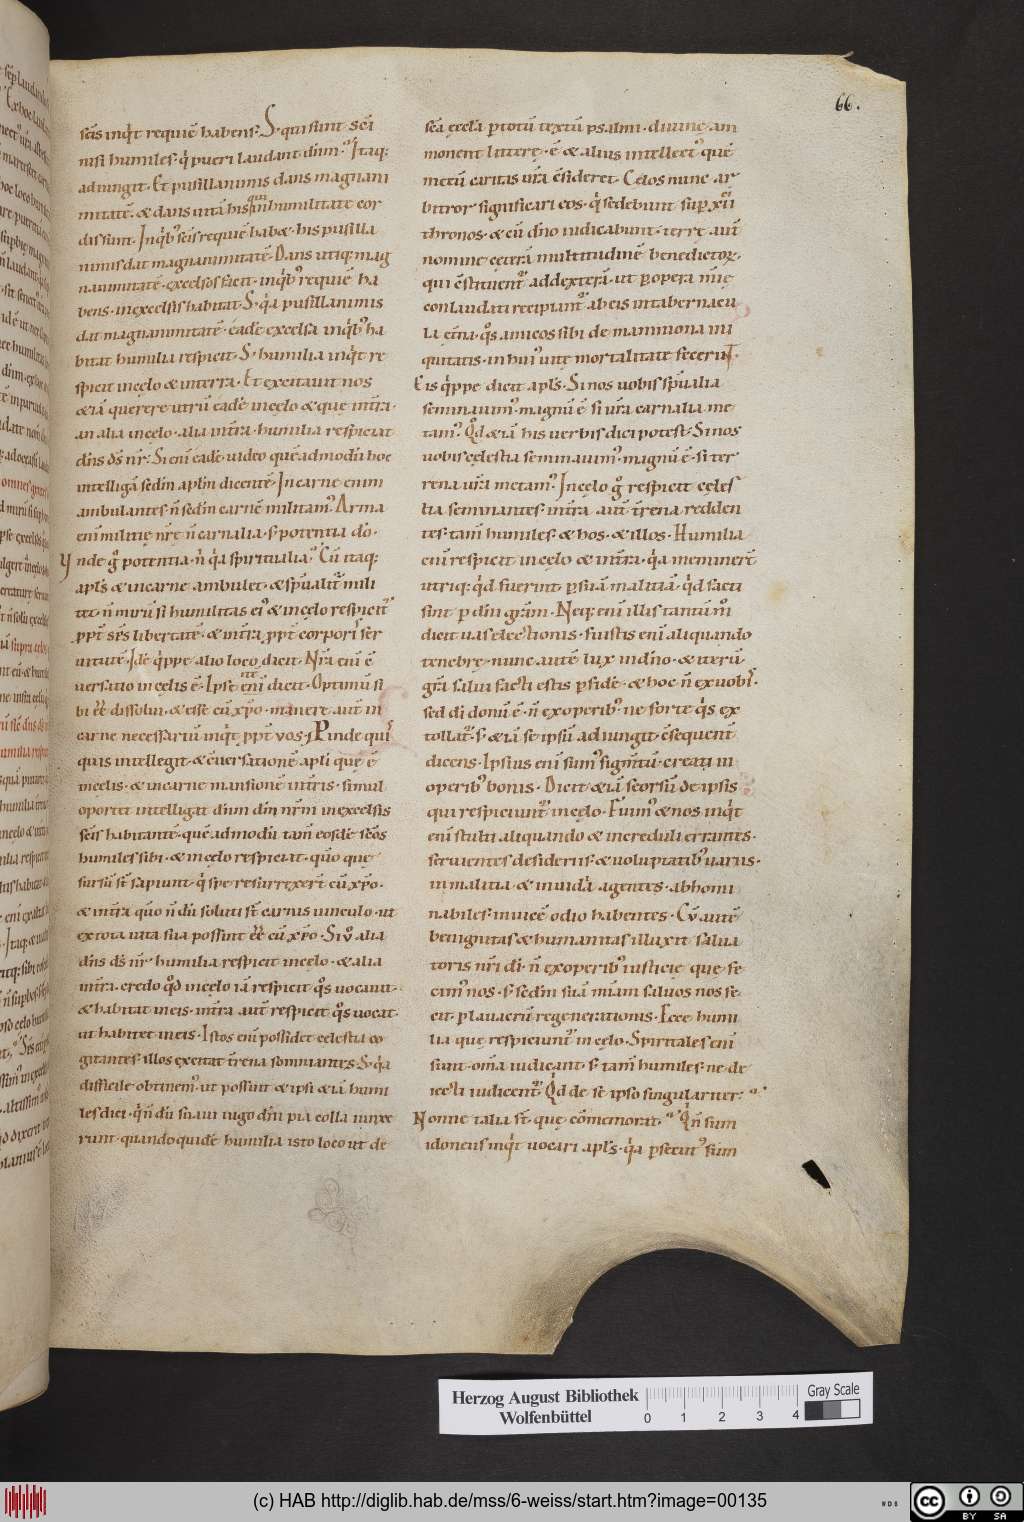 66.
scīs inq̇t requiē habens. S; qui sunt scī
nisi humiles. q̇ pueri laudant dn̄m. Itaq;
adiungit. Et pusillanimis dans magnani
mitatē. & dans uitā his qui humilitate cor
dis sunt. In q̇bꝰ scīs requiē hab&. his pusilla
nimis dat magnanimitatē. Dans utiq; mag
nanimitatē. excelsos facit. in q̇bꝰ requiē ha
bens. in excelsis habitat. S; q̇a pusillanimis
dat magnanimitatē. eadē excelsa in q̇bꝰ ha
bitat humilia respicit. S; humilia inq̇t re
spicit in cęlo & in terra. Et excitauit nos
& iā querere utrū eadē in cęlo & que in tr̄ra.
an alia in cęlo. alia in tr̄ra. humilia respiciat
dn̄s ds̄ nr̄. Si enī eadē. uideo quēadmodū hoc
intelligā sedm̄ aplm̄ dicentē. In carne enim
ambulantes n̄ sedm̄ carnē militamꝰ. Arma
enī militię nr̄ę n̄ carnalia. s; potentia dō.
Vnde g̊ potentia. n̄ q̇a spiritualia. Cū itaq;
apl̄s & in carne ambulet. & sp̄ualit̄ mili
tet. n̄ mirū si humilitas eiꝰ & in cęlo respicit̄
ppt̄ sp̄s libertatē. & in tr̄ra ppt̄ corporis ser
uitutē. Idē q̇ppe alio loco dicit. Nr̄a enī c̄
uersatio in cęlis ē. Ipse enī dicit. Optimū si
bi ēē dissolui. & esse cū xp̄o. manere aut̄ in
carne necessariū inq̇t ppt̄ vos. Proinde qui
quis intellegit & c̄uersationē apli quę ē
in cęlis. & in carne mansionē in tr̄ris. simul
oportet intelligat dn̄m dm̄ nrm̄ in excelsis
scīs habitantē. quēadmodū tam̄ eosdē scōs
humiles sibi. & in cęlo respiciat. quo que
sursū st̄ sapiunt. q̇ spe resurrexert̄ cū xp̄o.
& in tr̄ra quo n̄dū soluti st̄ carnis uinculo. ut
ex tota uita sua possint ēē cū xp̄o. Siū alia
dn̄s ds̄ nr̄ humilia respicit in cęlo. & alia
in tr̄ra. credo qd̄ in cęlo iā respicit q̊s uocauit.
& habitat in eis. in tr̄ra aut̄ respicit q̊s uocat.
ut habitet in eis. Istos enī possidet cęlestia co
gitantes. illos excitat tr̄rena somniantes. S; q̇a
difficile obtinemꝰ ut possint & ipsi & iā humi
les dici. q̇ n̄dū suaui iugo dn̄i pia colla iunxe
runt. quando quidē humilia isto loco ut de
scā eccl̄a p totū textū psalmi. diuinę am
monent litterę. ē & alius intellectꝰ quē
mecū caritas ur̄a c̄sideret. Cęlos nunc ar
bitror significari eos. q̇ sedebunt sup xii
thronos. & cū dn̄o iudicabunt. terrę aut̄
nomine cęterā multitudinē benedictorꝫ.
qui c̄stituent̄ ad dexterā. ut p opera mīę
conlaudati recipiant̄ ab eis in tabernacu
la et̄na. q̊s amicos sibi de mammona ini
quitatis. in huiꝰ uitę mortalitate fecerint.
Eis q̇ppe dicit apl̄s. Si nos uobis sp̄ualia
seminauimꝰ. magnū ē si ur̄a carnalia me
tamꝰ. Qd̄ & iā his uerbis dici potest. Si nos
uobis cęlestia seminauimꝰ. magnū ē. si ter
rena ur̄a metamꝰ. In cęlo g̊ respicit cęles
tia seminantes. in tr̄ra aut̄ tr̄rena redden
tes. tam̄ humiles. & hos. & illos. Humilia
enī respicit in cęlo & in tr̄ra. q̇a meminert̄
utriq; qd̄ fuerint p suā malitiā. qd̄ facti
sint p dn̄i grām. Neq; enī illis tantūm̊
dicit uas electionis. fuistis enī aliquando
tenebrę. nunc autē lux in dn̄o. & iterū
gr̄a salui facti estis p fidē. & hoc n̄ ex uobis.
sed dī donū ē. n̄ ex operibꝰ. ne forte q̊s ex
tollat̄. s; & iā se ipsū adiungit c̄sequent̄
dicens. Ipsius enī sumꝰ figmtū. creati in
operibꝰ bonis. Dicit & iā seorsū de ipsis
qui respiciunt̄ in cęlo. Fuimꝰ & nos inq̇t
enī stulti aliquando & increduli errantes.
seruientes desideriis. & uoluptatibꝰ uariis.
in malitia. & inuidia agentes. abhomi
nabiles. inuicē odio habentes. Cū autē
benignitas & humanitas illuxit salua
toris nr̄i dī. n̄ ex operibꝰ iusticię que fe
cimꝰ nos. s; sedm̄ suā mīam saluos nos fe
cit. p lauacrū regenerationis. Ecce humi
lia que respiciunt̄ in cęlo. Spiritales enī
sunt. om̄a iudicant. s; tam̄ humiles. ne de
iecti iudicent̄. Qd̄ de se ipso singulariter.
Nonne talia st̄. que cōmemorat. Qn̄ sum
idoneus inq̇t uocari apl̄s. q̇a psecutꝰ sum
Herzog August Bibliothek
Wolfenbüttel
0 1 2 3 4
Gray Scale
(c) HAB http://diglib.hab.de/mss/6-weiss/start.htm?image=00135
WDB
cc
BY SA